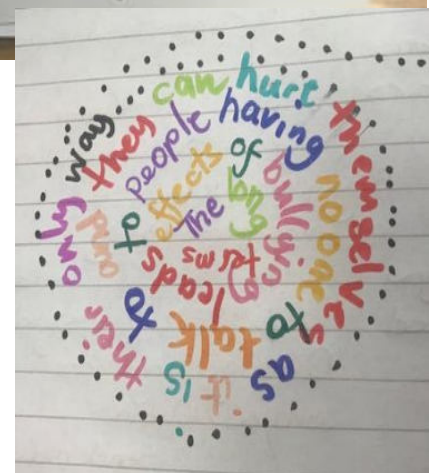 The long terms effects of bullying leads to people having no one to talk to and they can hurt themselves as it is their only way